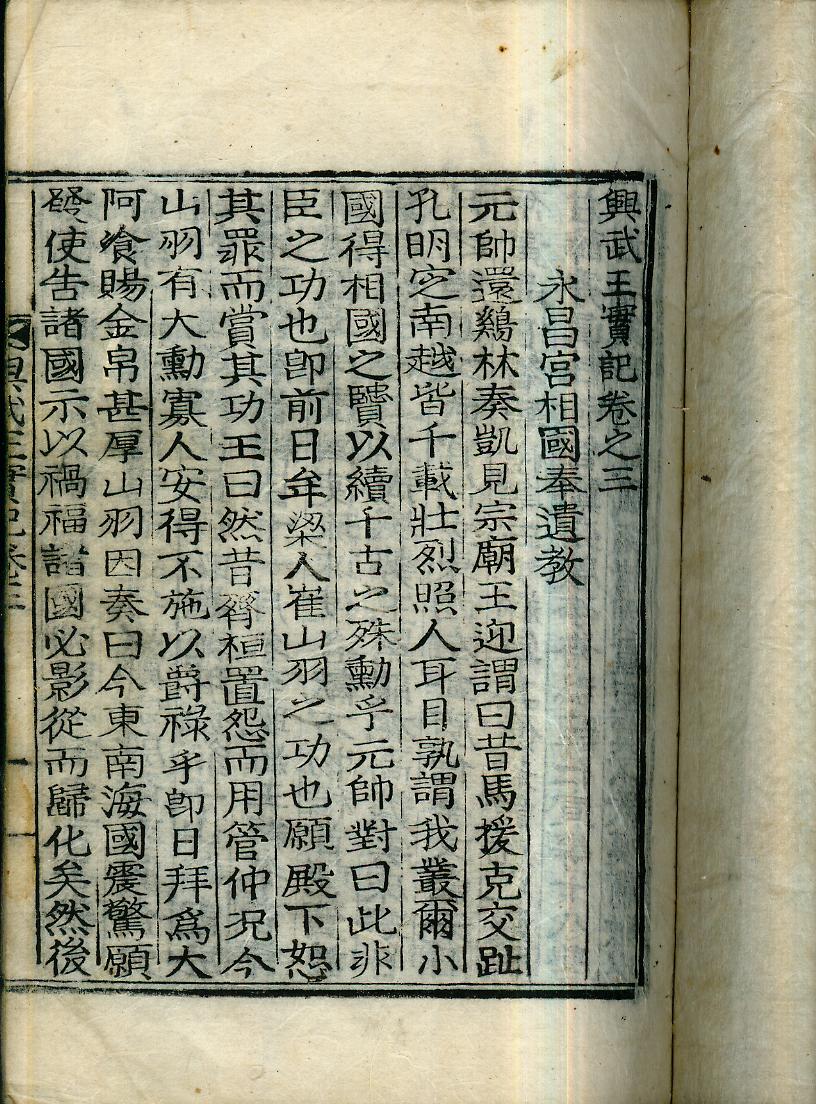 興武王實記卷之三
永昌宮相國奉遺教
元帥還鷄林奏凱見宗廟王迎謂曰昔馬援克交趾
孔明定南越皆千載壯烈照人耳目孰謂我叢爾小
國得相國之賢以續千古之殊勳乎元帥對曰此非
臣之功也卽前日牟梁人崔山羽之功也願殿下恕
其罪而賞其功王曰然昔齊桓置怨而用管仲況今
山羽有大勳寡人安得不施以爵祿乎卽日拜爲大
阿飡賜金帛甚厚山羽因奏曰今東南海國震驚願
發使告諸國示以禍福諸國必影從而歸化矣然後
興武王實記卷之三